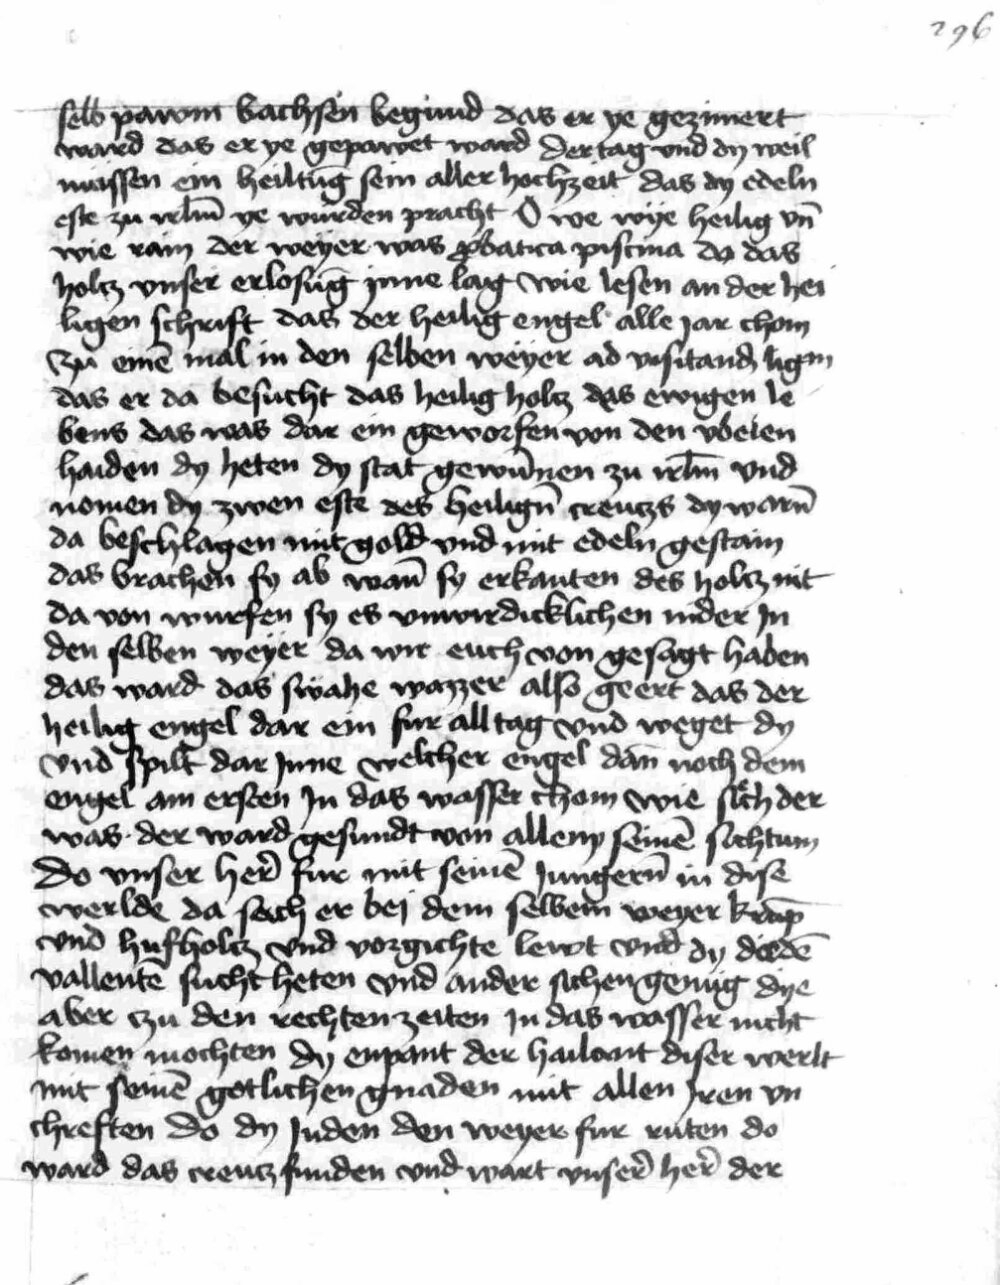 296
selb pawm bachsen begund das er ye gezimert
ward das er ye gepawet ward der tag vnd dy weil
müssen ein heiltūg sein aller hochzeit das dy edeln
este zu irl̄m ye wurden pracht O we wÿe heilig vn̄
wie rain der weÿer was probatica piscina do das
holtz vnser erlosūg jnne lag Wie lesen an der hei
ligen schrift das der heilig engel alle jar chom
zu einē mal in den selben weÿer ad visitand lignū
das er da besucht das heilig holtz das ewigen le
bens das was dar ein geworfen von den
haiden dy heten dy stat gewūnen zu irl̄m vnd
nomen dy zwen este des heilign̄ creuczs dy warn̄
da beschlagen mit gold vnd mit edeln gestain
das brachen sy ab wan̄ sy erkanten des holtz nit
da von wurfen sy es vnwirdicklichen nider In
den selben weÿer da wir euch von gesagt haben
das ward das swahe wazzer also geert das der
heilig engel dar ein fur all tag vnd weget dy
vnd spilt dar jnne welcher engel dan̄ noch dem
engel am ersten In das wasser chom wie sich der
was der ward gesundt von allem seinē sichtum
Do vnser her̄ fur mit seinē Jungern̄ in dise
werlde da sach er bei dem selbem weyer
vnd hufholtz vnd vorgichte lewt vnd dy
vallentē sucht heten vnd ander sichen genüg dye
aber czu den rechten zeiten In das wasser nicht
komen mochten dy enpant der hailant diser werlt
mit seinē gotlichen gnaden mit allen Jren vn
chreften Do dy Juden den weyer fur ruten do
ward das creucz funden vnd wart vnser̄ her̄ der